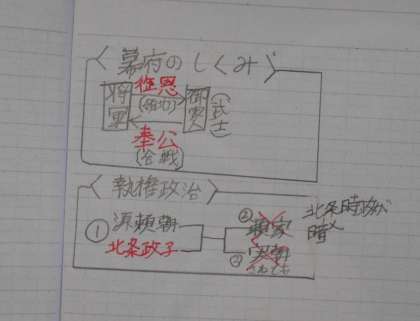 幕府のしくみ
将軍
御恩
(領地)
御家
(武士)
奉公
(合戦)
執権政治
① 源頼朝
北条政子
② 頼家
③ 実朝
さねとも
北条時政が
暗